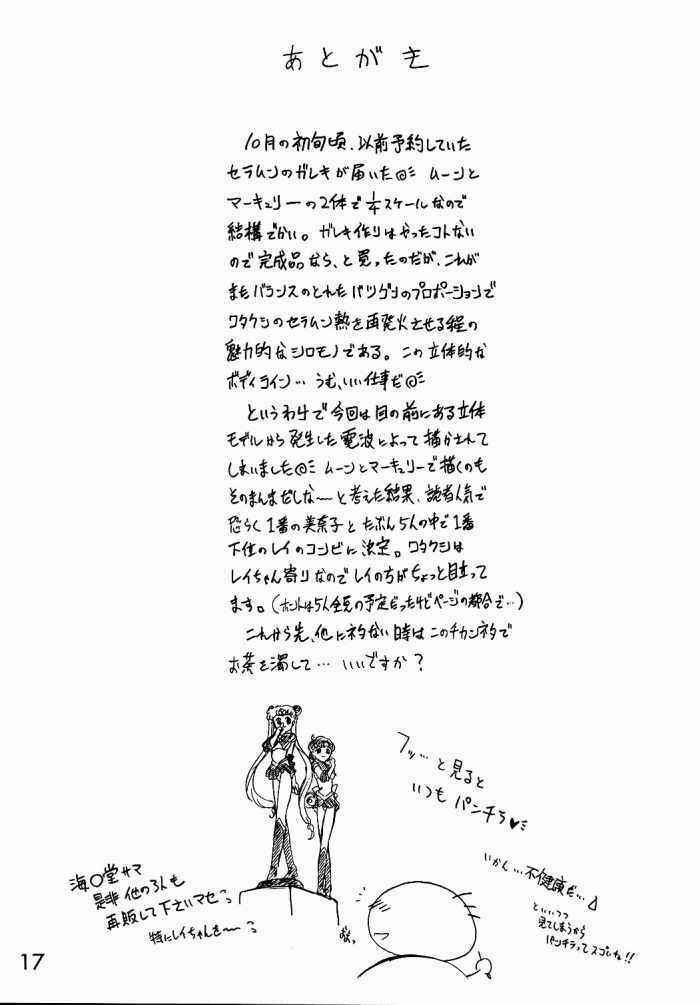 あとがき
10月の初旬頃、以前予約していた
セラムンのガレキが届いた◎ミ ムーンと
マーキュリーの2体で1/4スケールなので
結構でかい。ガレキ作りはやったコトない
ので完成品なら、と買ったのだが、これが
またバランスのとれたバツグンのプロポーションで
ワタクシのセラムン熱を再発火させる程の
魅力的なシロモノである。この立体的な
ボディライン… うむ、いい仕事だ◎ミ
というわけで今回は目の前にある立体
モデルから発生した電波によって描かされて
しまいました◎ミ ムーンとマーキュリーで描くのも
そのまんまだしな〜と考えた結果、読者人気で
恐らく1番の美奈子とたぶん5人の中で1番
下位のレイのコンビに決定。ワタクシは
レイちゃん寄りなのでレイの方がちょっと目立って
ます。(ホントは5人全員の予定だったけどページの都合で…)
これから先、他にネタない時はこのチカンネタで
お茶を濁して… いいですか?
フッ…と見ると
いつもパンチラ♥ミ
海〇堂サマ
是非他の3人も
再販して下さいマセ
特にレイちゃんを〜
いかん…不健康だ…
といいつつ
見てしまうから
パンチラってスゴいね!!
17